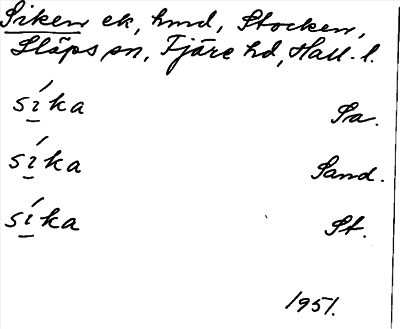 Siken ek, hmd, Stocken,
Släps sn, Fjäre hd, Hall. l.
síka Sa.
síka Sand.
síka St.
1951.